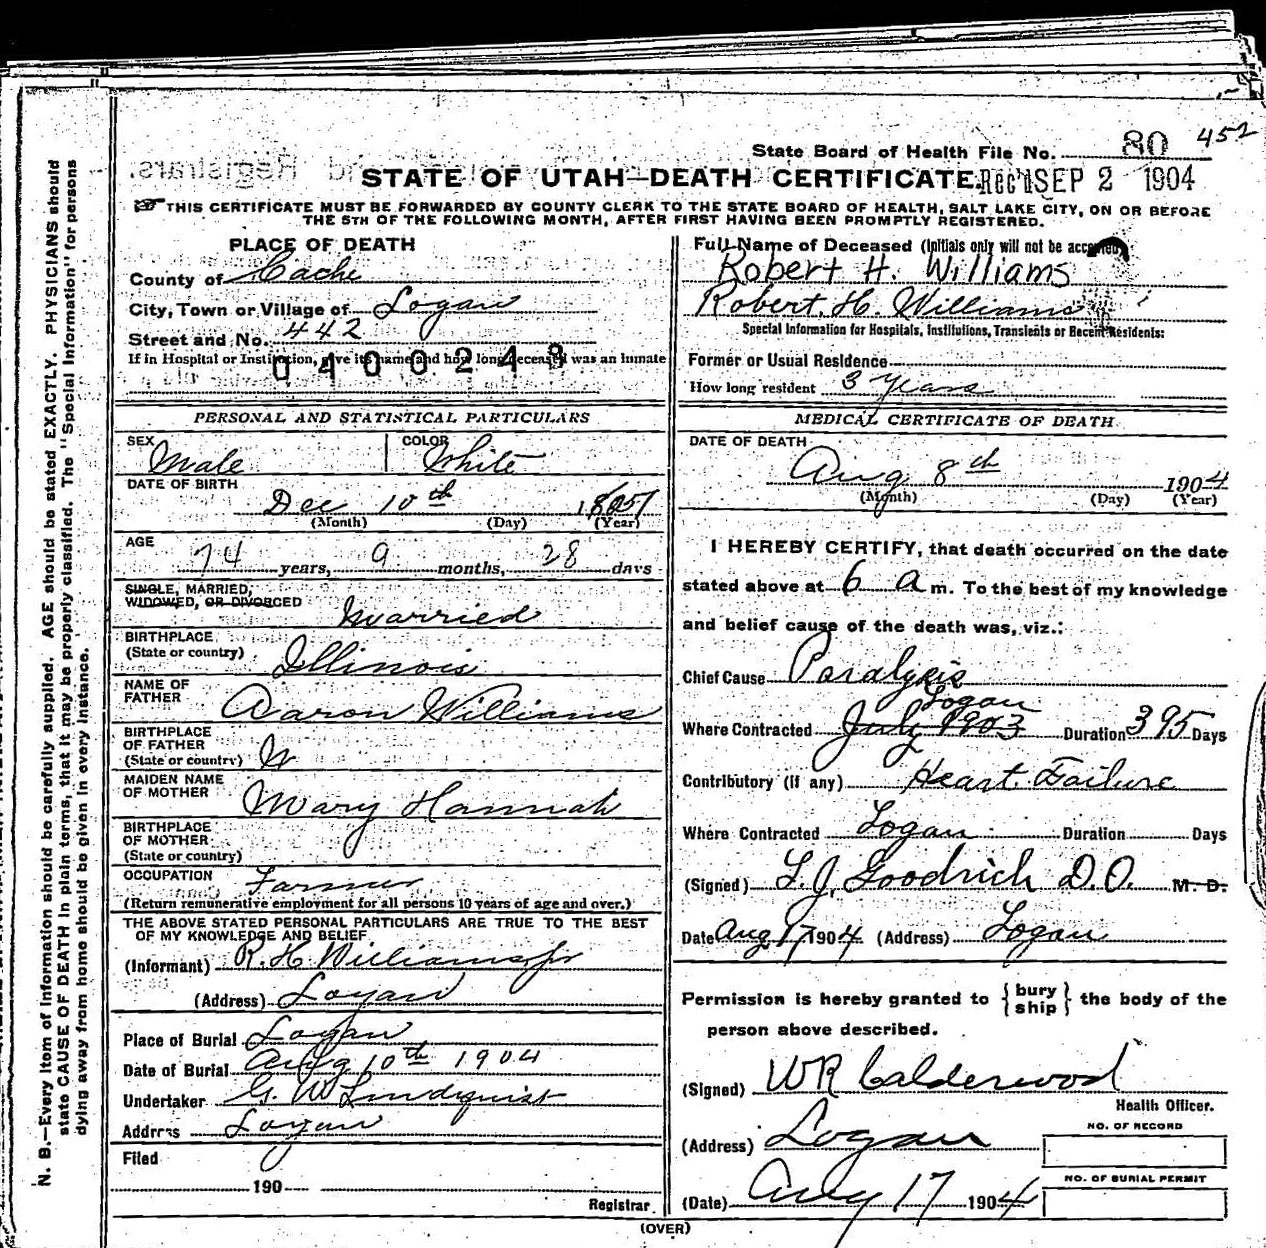 State Board of Health File No. 80 452
STATE OF UTAH—DEATH CERTIFICATE. Rec'd SEP 2 1904
Registrars.
THIS CERTIFICATE MUST BE FORWARDED BY COUNTY CLERK TO THE STATE BOARD OF HEALTH, SALT LAKE CITY, ON OR BEFORE
THE 5TH OF THE FOLLOWING MONTH, AFTER FIRST HAVING BEEN PROMPTLY REGISTERED.
PLACE OF DEATH
County of Cache
City, Town or Village of Logan
Street and No. 442
If in Hospital or Institution, give its name and how long deceased was an inmate
0400248
PERSONAL AND STATISTICAL PARTICULARS
SEX Male COLOR White
DATE OF BIRTH
Dec 10th
(Month) (Day) (Year)
AGE
74 years, 9 months, 28 days
SINGLE, MARRIED,
WIDOWED, OR DIVORCED Married
BIRTHPLACE
(State or country) Illinois
NAME OF
FATHER Aaron Williams
BIRTHPLACE
OF FATHER
(State or country)
MAIDEN NAME
OF MOTHER Mary Hannah
BIRTHPLACE
OF MOTHER
(State or country)
OCCUPATION Farmer
(Return remunerative employment for all persons 10 years of age and over.)
THE ABOVE STATED PERSONAL PARTICULARS ARE TRUE TO THE BEST
OF MY KNOWLEDGE AND BELIEF
(Informant) R. H. Williams jr
(Address) Logan
Place of Burial Logan
Date of Burial Aug 10th 1904
Undertaker G. W. Lindquist
Address Logan
Filed
190
Registrar
Full Name of Deceased (Initials only will not be accepted)
Robert H. Williams
Robert. H. Williams
Special Information for Hospitals, Institutions, Transients or Recent Residents:
Former or Usual Residence
How long resident 3 years
MEDICAL CERTIFICATE OF DEATH
DATE OF DEATH
Aug 8th 1904
(Month) (Day) (Year)
I HEREBY CERTIFY, that death occurred on the date
stated above at 6 a m. To the best of my knowledge
and belief cause of the death was, viz.:
Chief Cause Paralysis
Logan
Where Contracted July 1903 Duration 395 Days
Contributory (if any) Heart Failure
Where Contracted Logan Duration Days
(Signed) L. J. Goodrich D.O. M. D.
Date Aug 17 1904 (Address) Logan
Permission is hereby granted to {bury ship} the body of the
person above described.
(Signed) WR Calderwood
Health Officer.
(Address) Logan
NO. OF RECORD
NO. OF BURIAL PERMIT
(Date) Aug 17 1904
(OVER)
N. B.—Every item of information should be carefully supplied. AGE should be stated EXACTLY. PHYSICIANS should
state CAUSE OF DEATH in plain terms, that it may be properly classified. The "Special Information" for persons
dying away from home should be given in every instance.